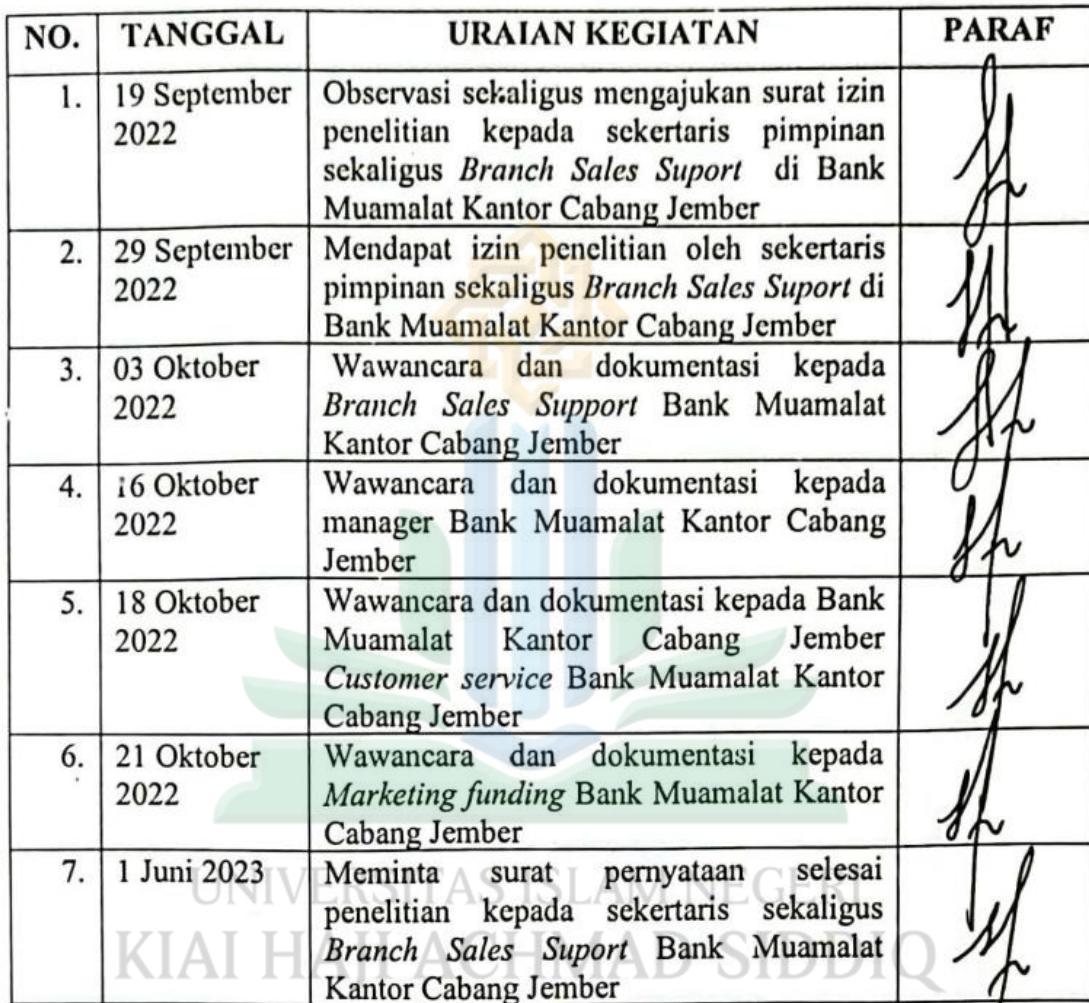 NO. TANGGAL URAIAN KEGIATAN PARAF
1. 19 September Observasi sekaligus mengajukan surat izin
2022 penelitian kepada sekertaris pimpinan
sekaligus Branch Sales Suport di Bank
Muamalat Kantor Cabang Jember
2. 29 September Mendapat izin penelitian oleh sekertaris
2022 pimpinan sekaligus Branch Sales Suport di
Bank Muamalat Kantor Cabang Jember
3. 03 Oktober Wawancara dan dokumentasi kepada
2022 Branch Sales Support Bank Muamalat
Kantor Cabang Jember
4. 16 Oktober Wawancara dan dokumentasi kepada
2022 manager Bank Muamalat Kantor Cabang
Jember
5. 18 Oktober Wawancara dan dokumentasi kepada Bank
2022 Muamalat Kantor Cabang Jember
Customer service Bank Muamalat Kantor
Cabang Jember
6. 21 Oktober Wawancara dan dokumentasi kepada
2022 Marketing funding Bank Muamalat Kantor
Cabang Jember
7. 1 Juni 2023 Meminta surat pernyataan selesai
penelitian kepada sekertaris sekaligus
Branch Sales Suport Bank Muamalat
Kantor Cabang Jember
UNIVERSITAS ISLAM NEGERI
KIAI HAJI ACHMAD SIDDIQ